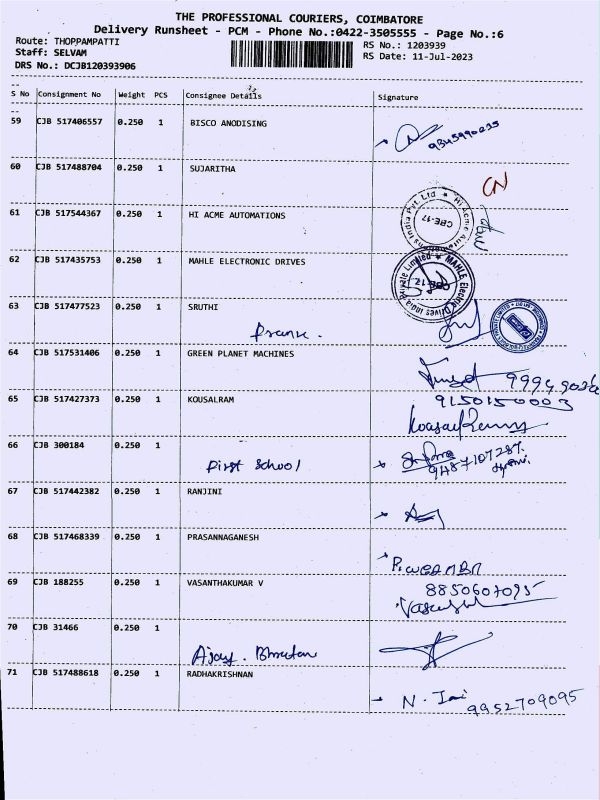 THE PROFESSIONAL COURIERS, COIMBATORE
Delivery Runsheet - PCM - Phone No.:0422-3505555 - Page No.:6
Route: THOPPAMPATTI RS No.: 1203939
Staff: SELVAM RS Date: 11-Jul-2023
DRS No.: DCJB120393906
S No Consignment No Weight PCS Consignee Details Signature
59 CJB 517406557 0.250 1 BISCO ANODISING
60 CJB 517488704 0.250 1 SUJARITHA
CN
61 CJB 517544367 0.250 1 HI ACME AUTOMATIONS
CBE-17
62 CJB 517435753 0.250 1 MAHLE ELECTRONIC DRIVES
MAHLE Electric Drives India Private Limited
63 CJB 517477523 0.250 1 SRUTHI
64 CJB 517531406 0.250 1 GREEN PLANET MACHINES
65 CJB 517427373 0.250 1 KOUSALRAM 9150150003
66 CJB 300184 0.250 1
First School
67 CJB 517442382 0.250 1 RANJINI
68 CJB 517468339 0.250 1 PRASANNAGANESH
69 CJB 188255 0.250 1 VASANTHAKUMAR V 8850607095
70 CJB 31466 0.250 1
Ajay
71 CJB 517488618 0.250 1 RADHAKRISHNAN
N. Jai 9952709095